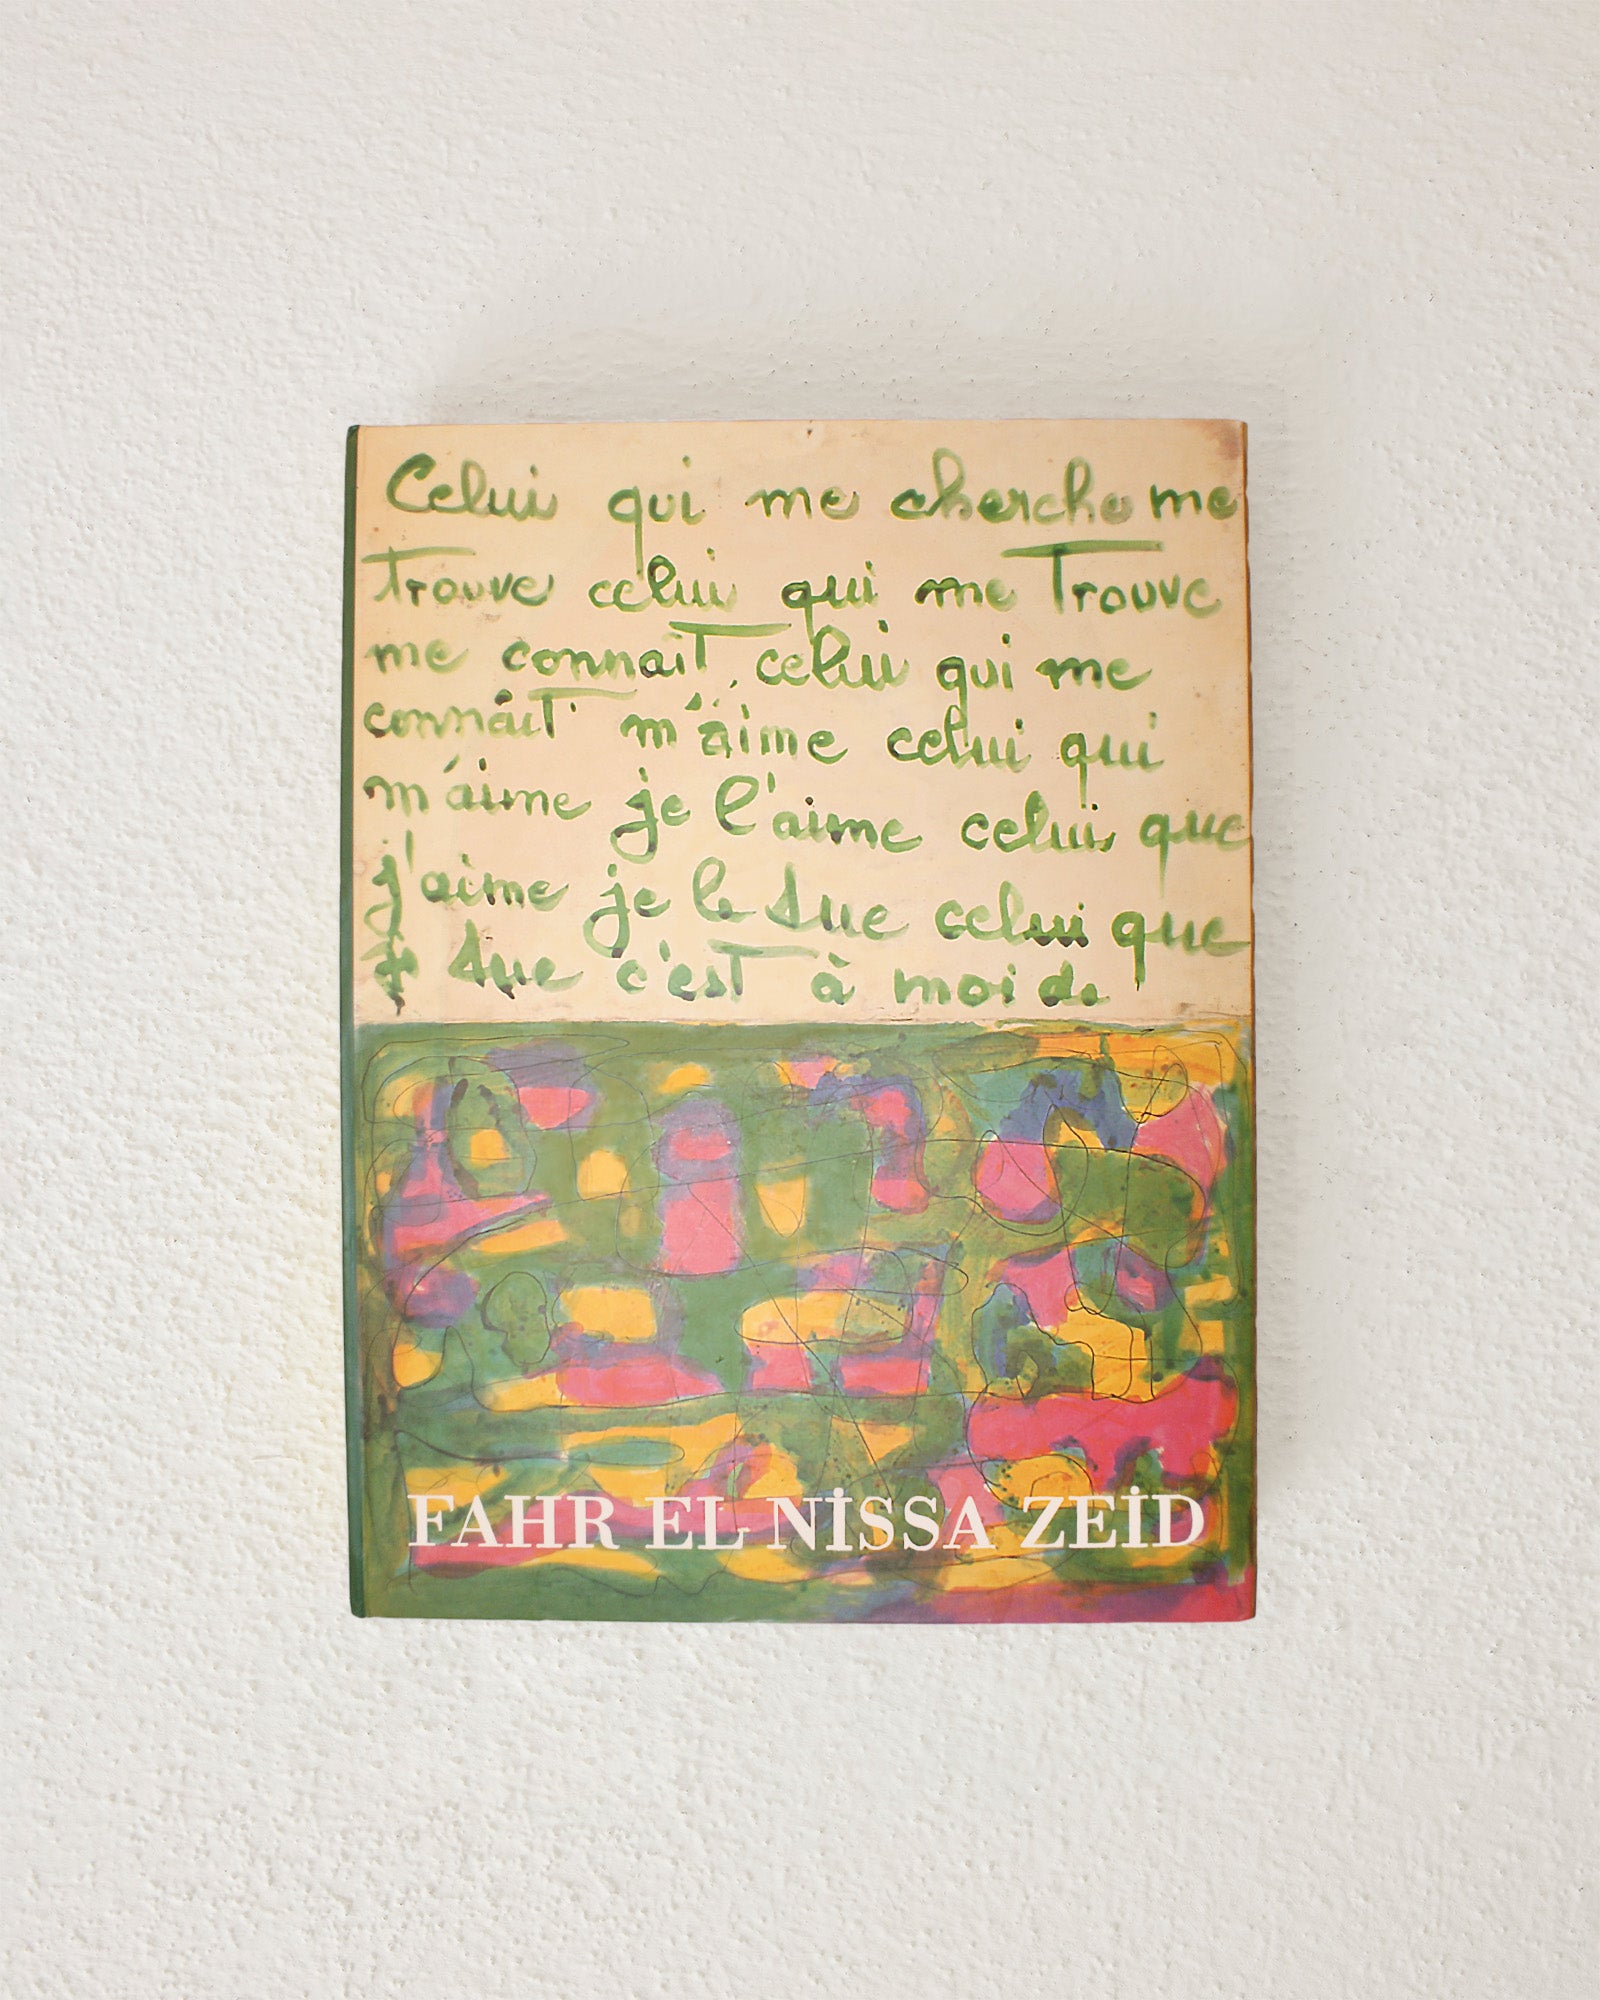 Celui qui me cherche me
Trouve celui qui me Trouve
me connaît, celui qui me
connaît m'aime celui qui
m'aime je l'aime celui que
j'aime je le tue celui que
je tue c'est à moi de
FAHR EL NİSSA ZEİD